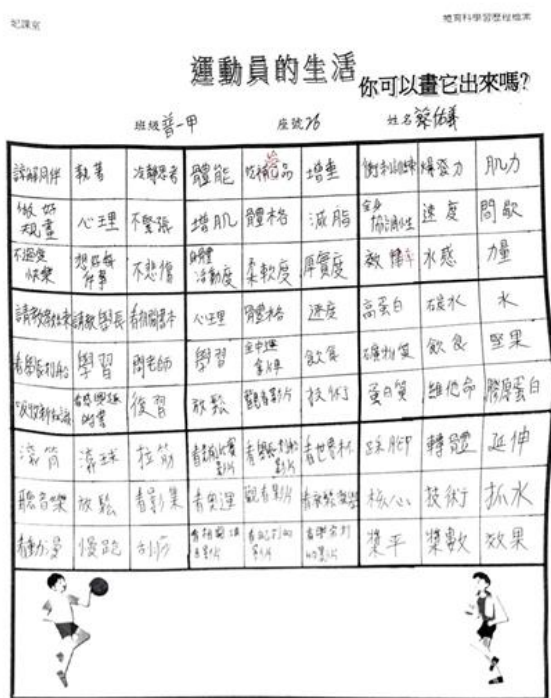 紀課室 體育科學習歷程檔案
運動員的生活 你可以畫它出來嗎?
班級 普一甲 座號 26 姓名 蔡佑義
諒解同伴 執著 冷靜思考 體能 吃補品 增重 衝刺訓練 爆發力 肌力
做好規畫 心理 不緊張 增肌 體格 減脂 全身協調性 速度 間歇
不過度快樂 想好每件事 不悲傷 身體活動度 柔軟度 厚實度 效率 水感 力量
請教教練 請教學長 看相關書本 心理 體格 速度 高蛋白 碳水 水
看學長划船 學習 問老師 學習 飲食 礦物質 飲食 堅果
吸收新知識 復習 放鬆 觀看影片 技術 蛋白質 維他命 膠原蛋白
滾筒 滾球 拉筋 看世界杯 踩腳 轉體 延伸
聽音樂 放鬆 看影集 看奧運 觀看影片 核心 技術 抓水
看動漫 慢跑 刮痧 槳平 槳數 效果